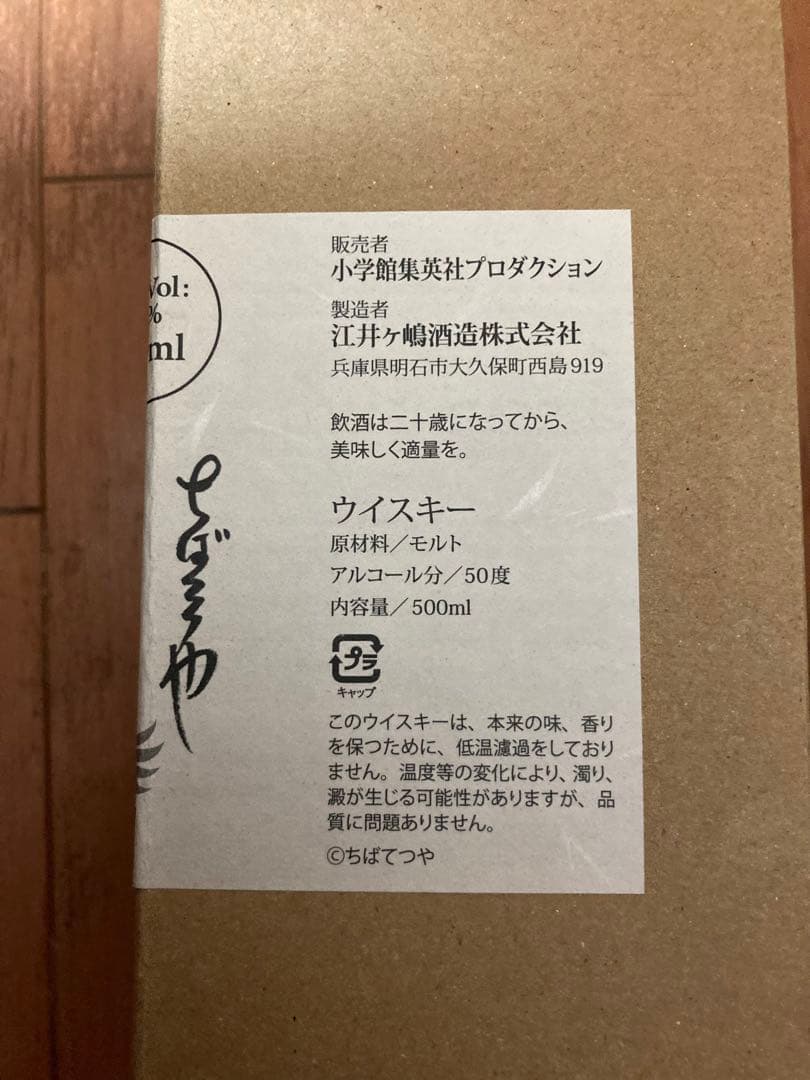 Vol:
%
ml
ちばてつや
販売者
小学館集英社プロダクション
製造者
江井ヶ嶋酒造株式会社
兵庫県明石市大久保町西島919
飲酒は二十歳になってから、
美味しく適量を。
ウイスキー
原材料／モルト
アルコール分／50度
内容量／500ml
プラ
キャップ
このウイスキーは、本来の味、香り
を保つために、低温濾過をしており
ません。温度等の変化により、濁り、
澱が生じる可能性がありますが、品
質に問題ありません。
©ちばてつや